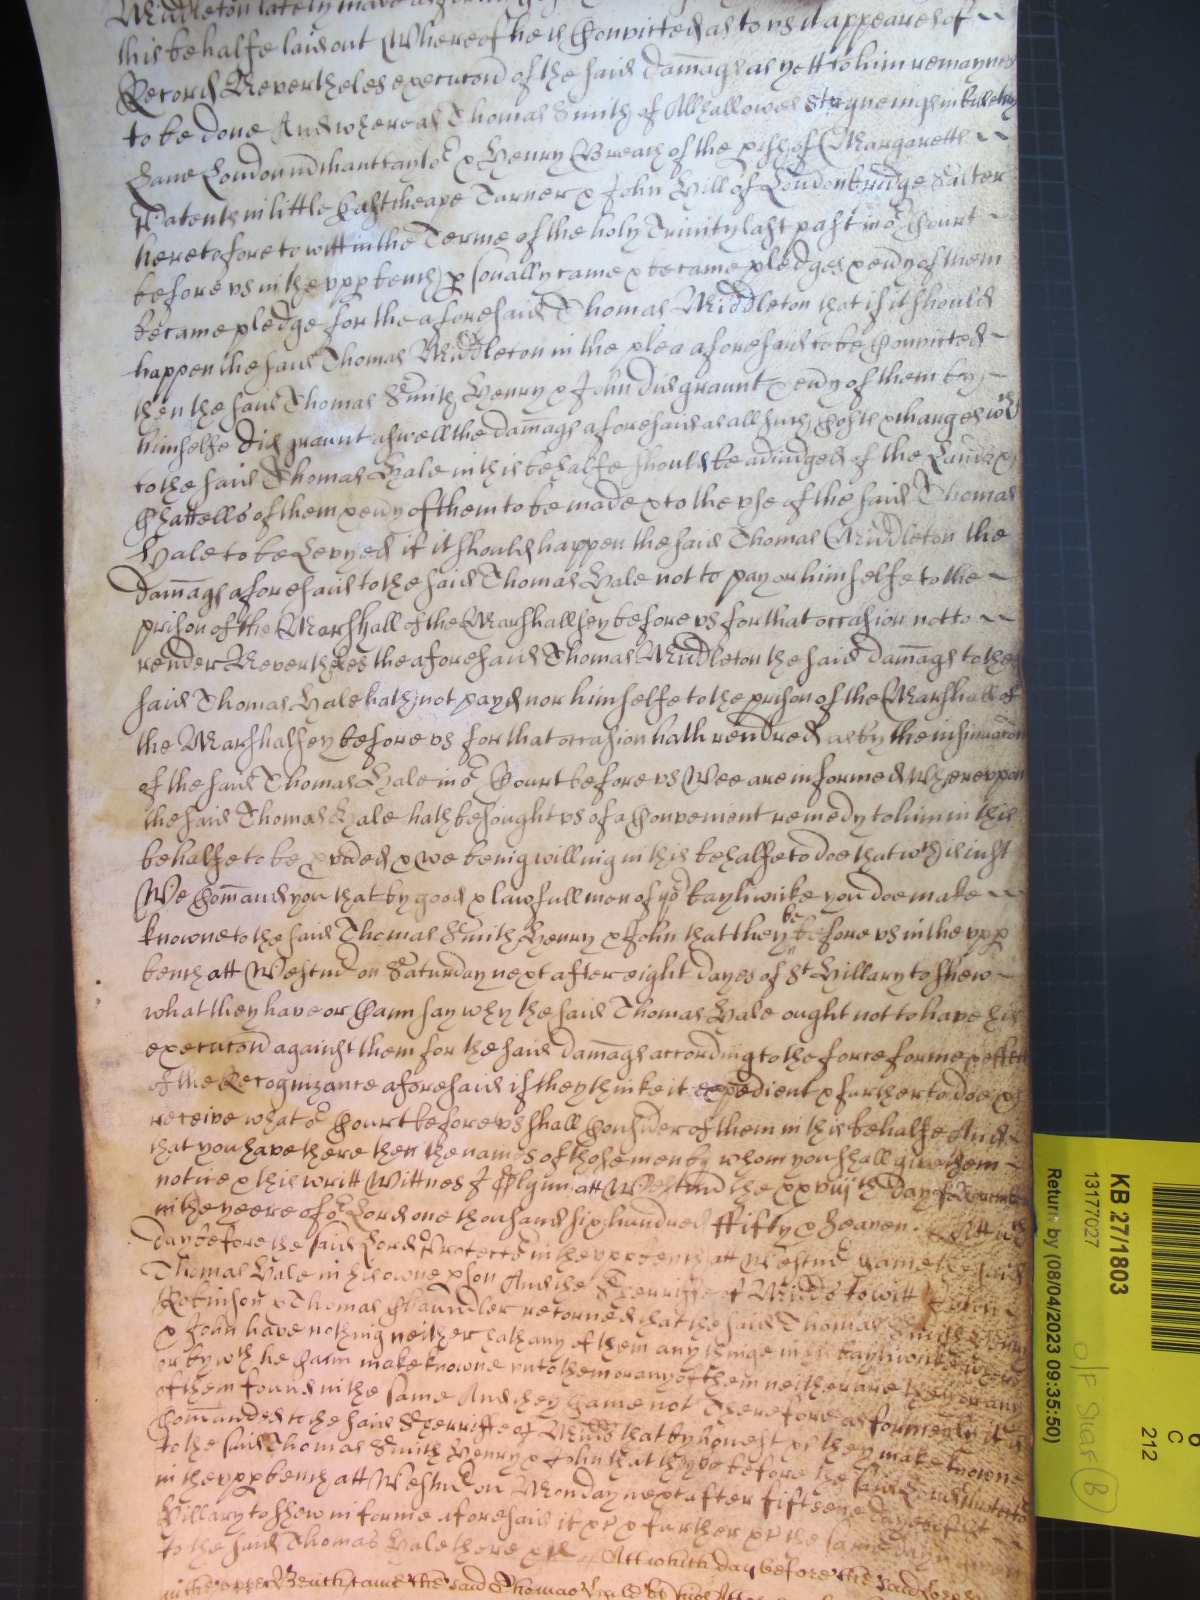 Middleton lately made
this behalfe laid out Whereof he is Convicted as to vs it appeares of
Record Neverthelesse execucon of the said damags as yett to him remaynes
to be done And whereas Thomas Smith of Allhallowes Stayneings in
Lane London mchant taylor & Henry Breach of the pish of Margaretts
Patents in little Eastcheape Turner & John Hill of London bridge Salter
heretofore to witt in the Terme of the holy Trinity last past in or Court
before vs in the vpp bench psonally came & became pledges & evy of them
became pledge for the aforesaid Thomas Middleton that if it should
happen the said Thomas Middleton in the plea aforesaid to be Convicted
then the said Thomas Smith Henry & John did graunt & evy of them by
himselfe did graunt aswell the damags aforesaid as all such Costs & charges wch
to the said Thomas Hale in this behalfe should be adiudged of the Lands &
Chattells of them & evy of them to be made & to the vse of the said Thomas
Hale to be Levyed if it should happen the said Thomas Middleton the
damags aforesaid to the said Thomas Hale not to pay or himselfe to the
prison of the Marshall of the Marshallsey before vs for that occasion not to
render Neverthelesse the aforesaid Thomas Middleton the said damags to the
said Thomas Hale hath not payd nor himselfe to the prison of the Marshall of
the Marshalsey before vs for that occasion hath rendred as by the insinuacon
of the said Thomas Hale in or Court before vs Wee are informed Wherevpon
the said Thomas Hale hath besought vs of a Convenient remedy to him in this
behalfe to be pvided & we being willing in this behalfe to doe that wch is iust
We Comand you that by good & lawfull men of yor bayliwicke you doe make
knowne to the said Thomas Smith Henry & John that they be before vs in the vpp
bench att Westm on Saturday next after eight dayes of St Hillary to shew
what they have or Cann say why the said Thomas Hale ought not to have his
execucon against them for the said damags according to the force forme & effect
of the Recognizance aforesaid if they thinke it expedient & further to doe &
receive what or Court before vs shall Consider of them in this behalfe And
that you have there then the names of those men by whom you shall give them
notice & this writt Wittnes J Glynn att Westm the xxviijth day of November
in the yeere of or Lord one thousand six hundred ffifty & Seaven Att wch
day before the said Lord Protector in the vpp bench att Westm came the said
Thomas Hale in his owne pson And the Sherriffe of Midds to witt
Robinson & Thomas Chaundler retorned that the said Thomas Smith Henry
& John have nothing neither hath any of them any thinge in his bayliwicke where
or by wch he Cann make knowne vnto them or any of them neither are they or any
of them found in the same And they Came not Therefore as formerly it is
Comanded to the said Sherriffe of Midds that by honest &c they make knowne
to the said Thomas Smith Henry & John that they be before the said Lord Protector
in the vpp bench att Westm on Monday next after fifteene dayes of St
Hillary to shew in forme aforesaid if &c & further &c the same day is given
to the said Thomas Hale there &c Att which day before the said Lord
in the upper Bench came the said Thomas Hale by his
KB 27/1803
13177027
Return by (08/04/2023 09:35:50)
C
212
O/F Staff B